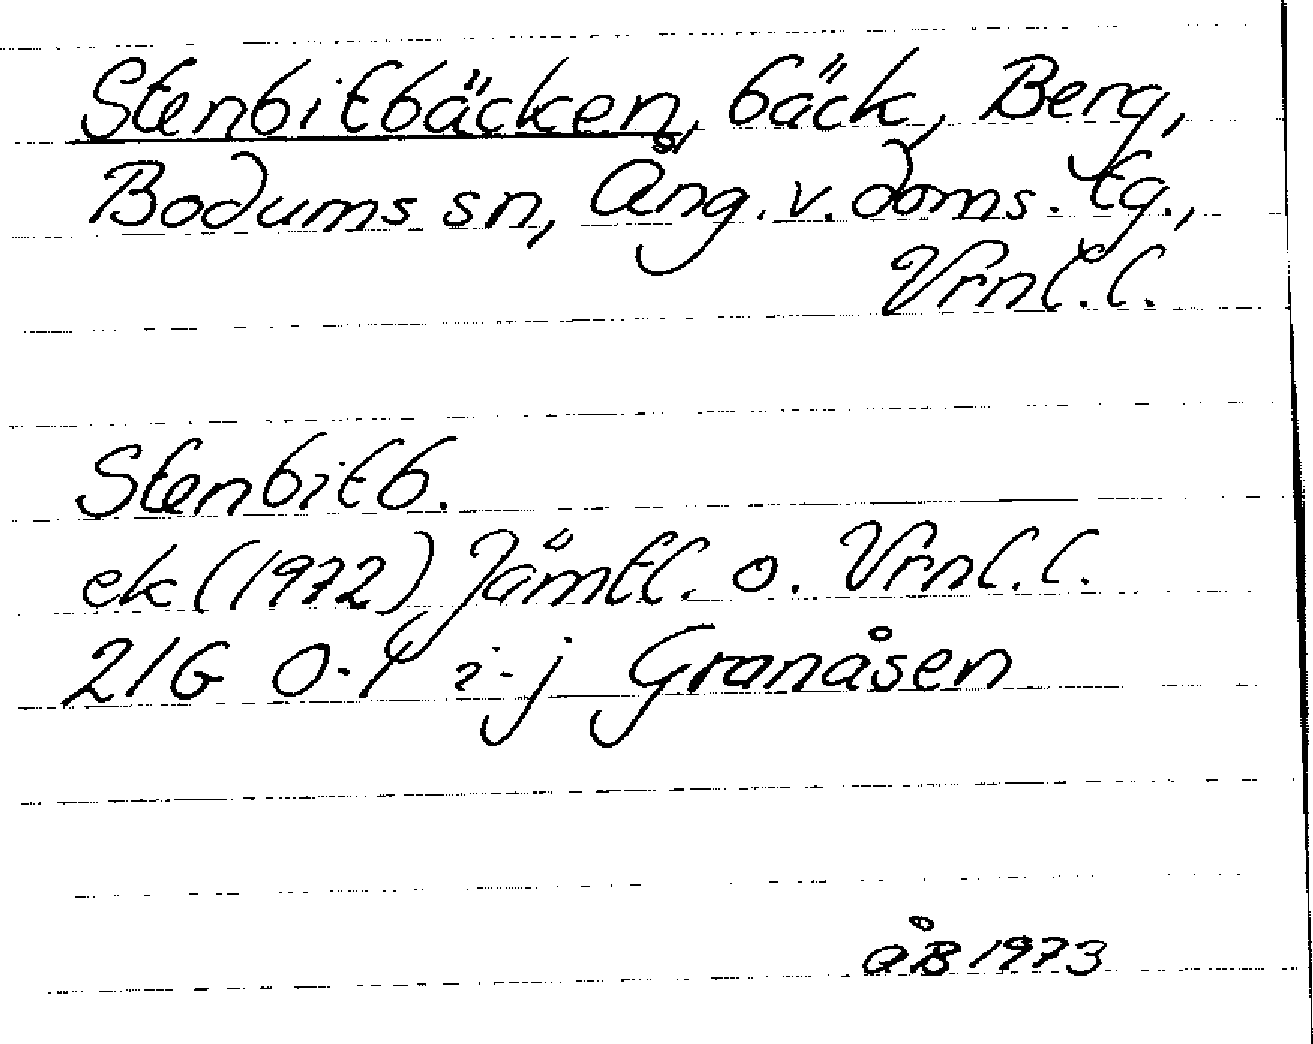 Stenbitbäcken, bäck, Berg,
Bodums sn, Ång. v. doms. tg.,
Vrnl. l.
Stenbitb.
ek (1972) Jämtl. o. Vrnl. l.
21G 0-1 i-j Granåsen
ÅB 1973